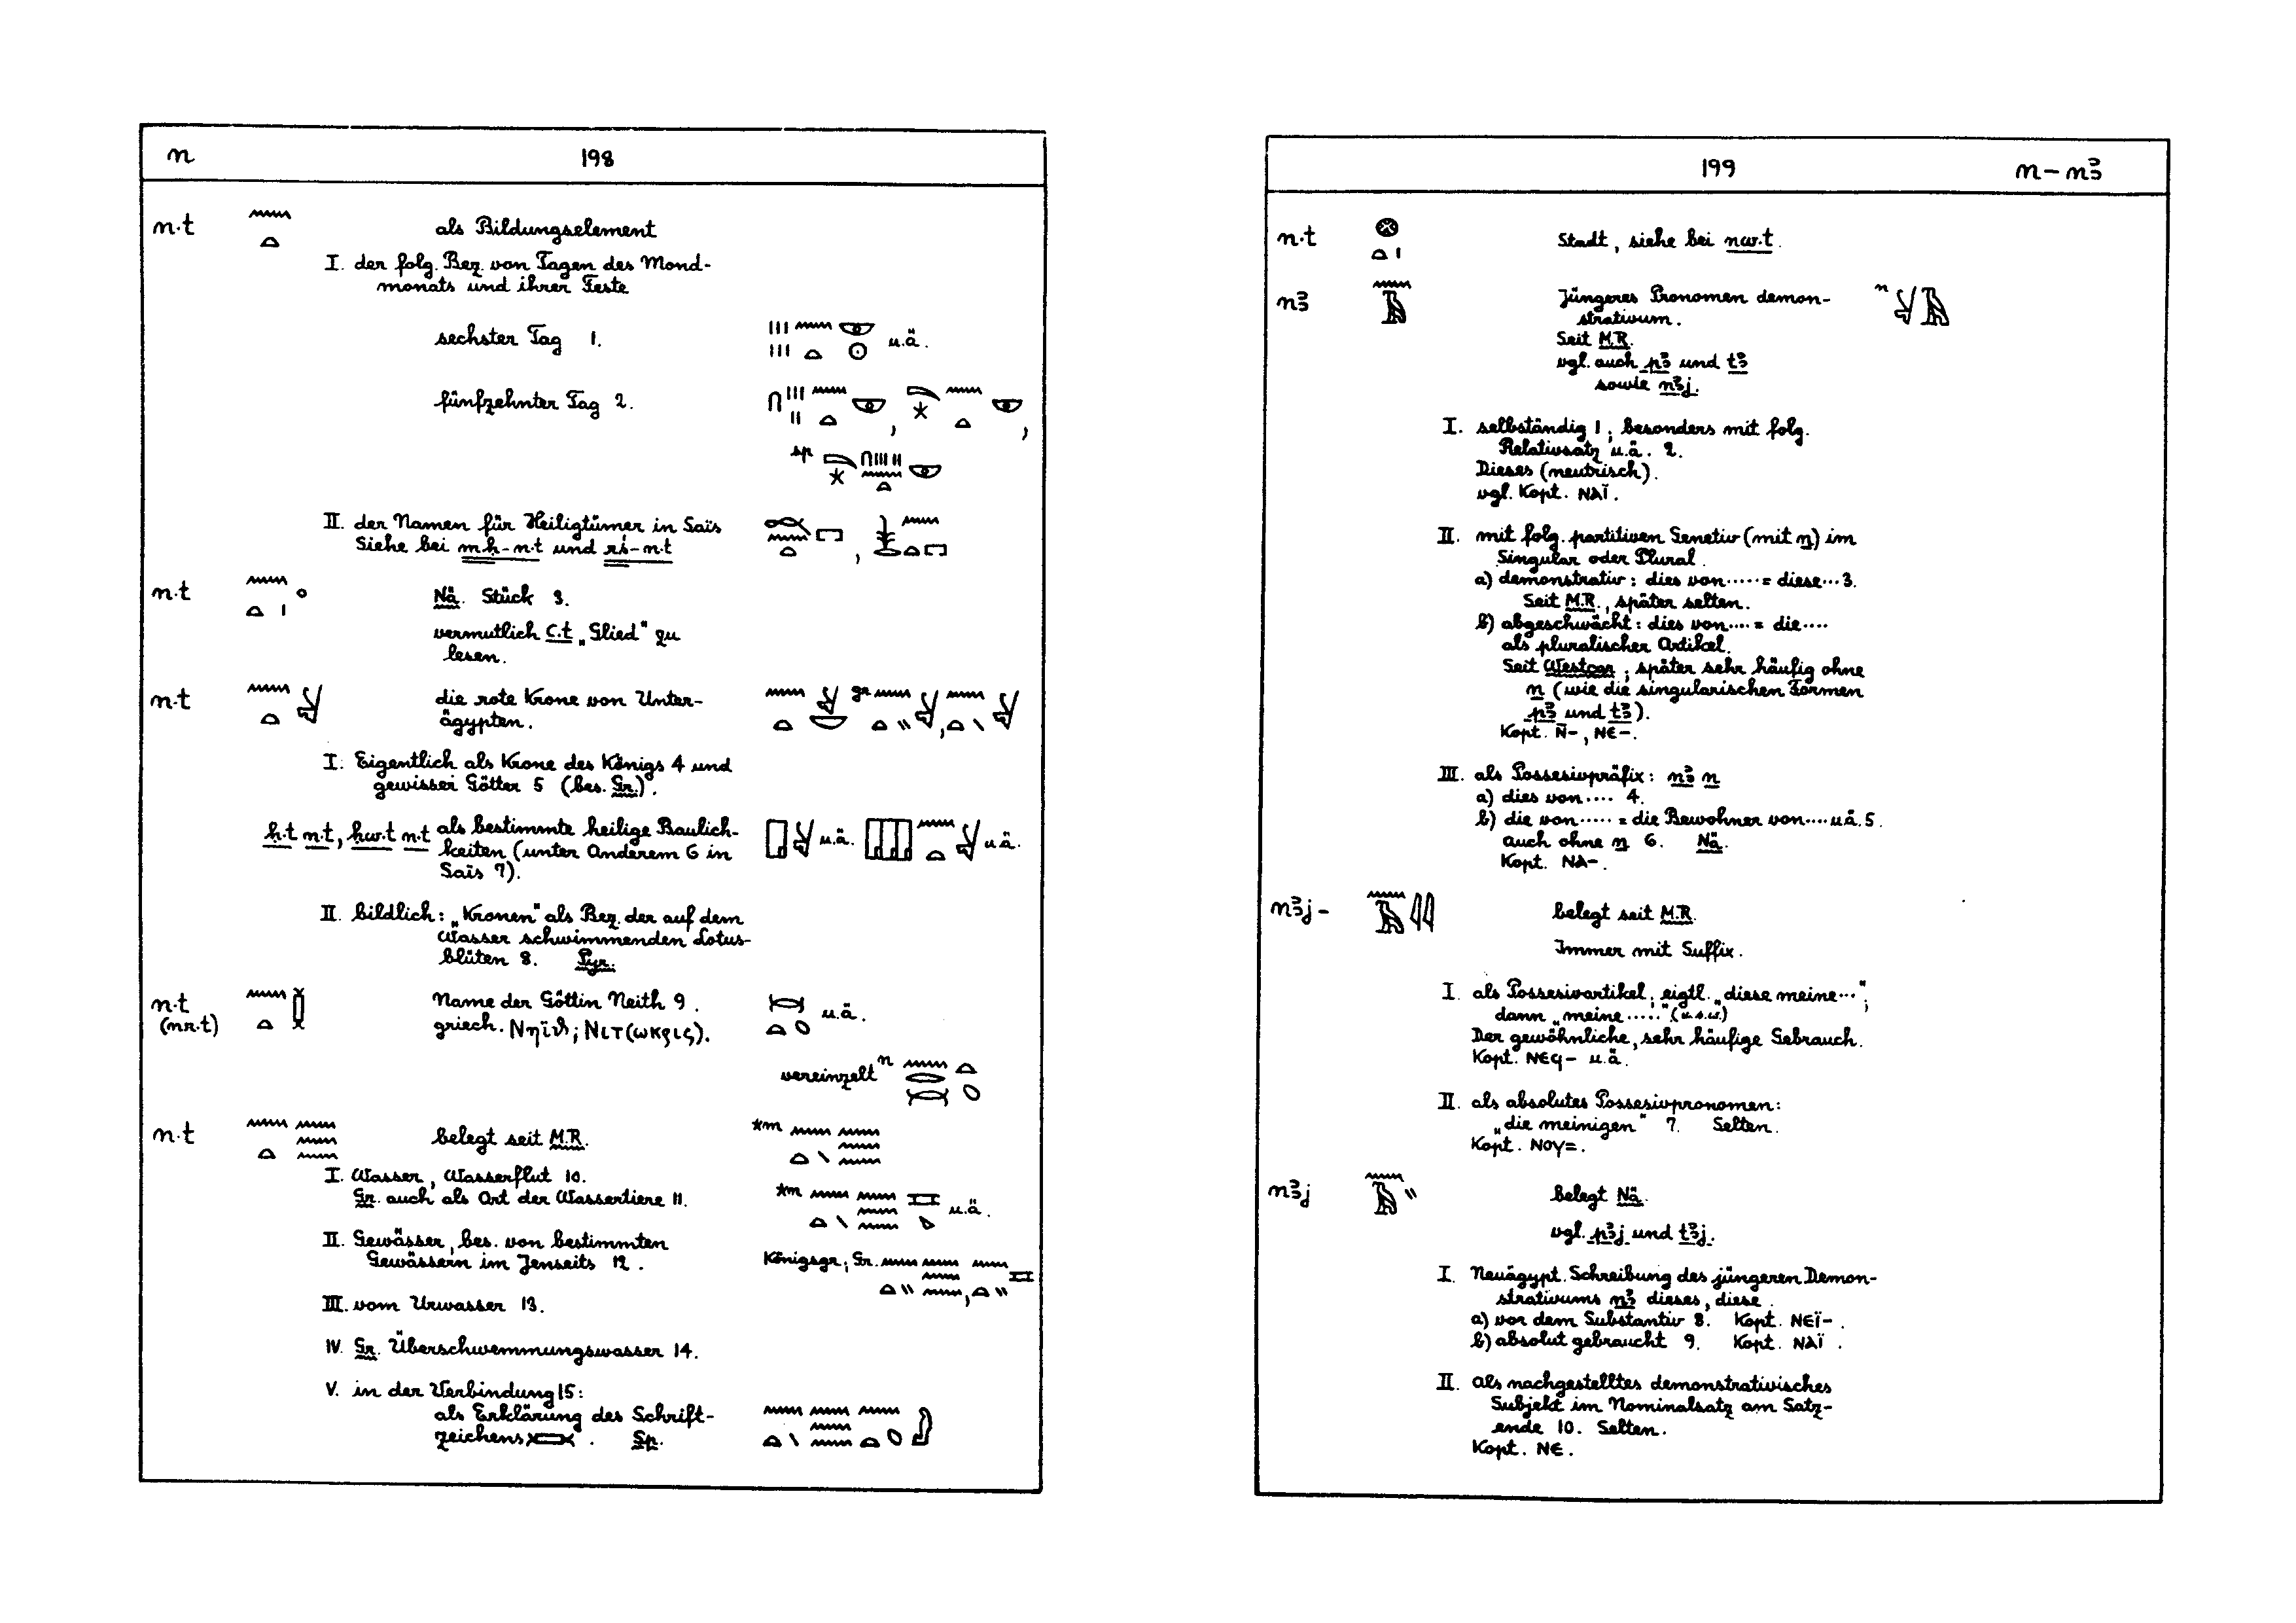 n 198
n·t als Bildungselement
I. der folg. Bez. von Tagen des Mond-
monats und ihrer Feste
sechster Tag 1. u.ä.
fünfzehnter Tag 2. , ,
sp
II. der Namen für Heiligtümer in Saïs ,
Siehe bei mḥ-n·t und rś-n·t
n·t Nä. Stück 3.
vermutlich c.t „Glied" zu
lesen.
n·t die rote Krone von Unter- gr ,
ägypten.
I. Eigentlich als Krone des Königs 4 und
gewisser Götter 5 (bes. Gr.).
ḥ·t n·t, ḥw·t n·t als bestimmte heilige Baulich- u.ä. u.ä.
keiten (unter Anderem 6 in
Saïs 7).
II. bildlich: „Kronen" als Bez. der auf dem
Wasser schwimmenden Lotus-
blüten 8. Pyr.
n·t Name der Göttin Neith 9. u.ä.
(nr·t) griech. Νηϊθ; Νιτ(ωκρις).
vereinzelt n
n·t belegt seit M.R. *m
I. Wasser, Wasserflut 10.
Gr. auch als Ort der Wassertiere 11. *m u.ä.
II. Gewässer, bes. von bestimmten
Gewässern im Jenseits 12. Königsgr., Gr. ,
III. vom Urwasser 13.
IV. Gr. Überschwemmungswasser 14.
V. in der Verbindung 15:
als Erklärung des Schrift-
zeichens . Sp.
199 n – nꜣ
n·t Stadt, siehe bei nw·t.
nꜣ Jüngeres Pronomen demon- n
strativum.
Seit M.R.
vgl. auch pꜣ und tꜣ
sowie nꜣj.
I. selbständig 1; besonders mit folg.
Relativsatz u.ä. 2.
Dieses (neutrisch).
vgl. Kopt. ⲚⲀⲒ̈.
II. mit folg. partitiven Genetiv (mit n) im
Singular oder Plural.
a) demonstrativ: dies von····· = diese··· 3.
Seit M.R., später selten.
b) abgeschwächt: dies von···· = die····
als pluralischer Artikel.
Seit Westcar; später sehr häufig ohne
n (wie die singularischen Formen
pꜣ und tꜣ).
Kopt. Ⲛ̄-, ⲚⲈ-.
III. als Possesivpräfix: nꜣ n
a) dies von···· 4.
b) die von····· = die Bewohner von···· u.ä. 5.
auch ohne n 6. Nä.
Kopt. ⲚⲀ-.
nꜣj- belegt seit M.R.
Immer mit Suffix.
I. als Possesivartikel; eigtl. „diese meine···";
dann „meine·····" (u.s.w.)
Der gewöhnliche, sehr häufige Gebrauch.
Kopt. ⲚⲈϤ- u.ä.
II. als absolutes Possesivpronomen:
„die meinigen" 7. Selten.
Kopt. ⲚⲞⲨ=.
nꜣj belegt Nä.
vgl. pꜣj und tꜣj.
I. Neuägypt. Schreibung des jüngeren Demon-
strativums nꜣ dieses, diese.
a) vor dem Substantiv 8. Kopt. ⲚⲈⲒ̈-.
b) absolut gebraucht 9. Kopt. ⲚⲀⲒ̈.
II. als nachgestelltes demonstrativisches
Subjekt im Nominalsatz am Satz-
ende 10. Selten.
Kopt. ⲚⲈ.